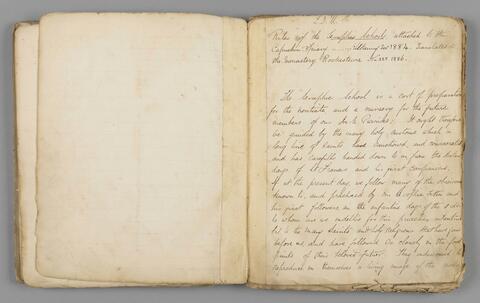 Rules of the Seraphic School attached to the
Capuchin Friary Kilkenny 1884. Translated to
the Monastery Rochestown 1886.
The Seraphic School is a sort of preparation
for the novitiate and a nursery for the future
members of our Province. It
be guided by the many holy customs which a
long line of saints have and consecrated
and has carefully handed down to us from the
days of St Francis and his first companions.
If at the present day we follow many of the
known to, and practised by our Seraphic Father and
his first followers in the days of the order
to whom are we indebted for this precious
but to the many Saints and holy religious that have gone
before us and have followed so closely in the foot
prints of their beloved father. They
reproduce in themselves a living image of the